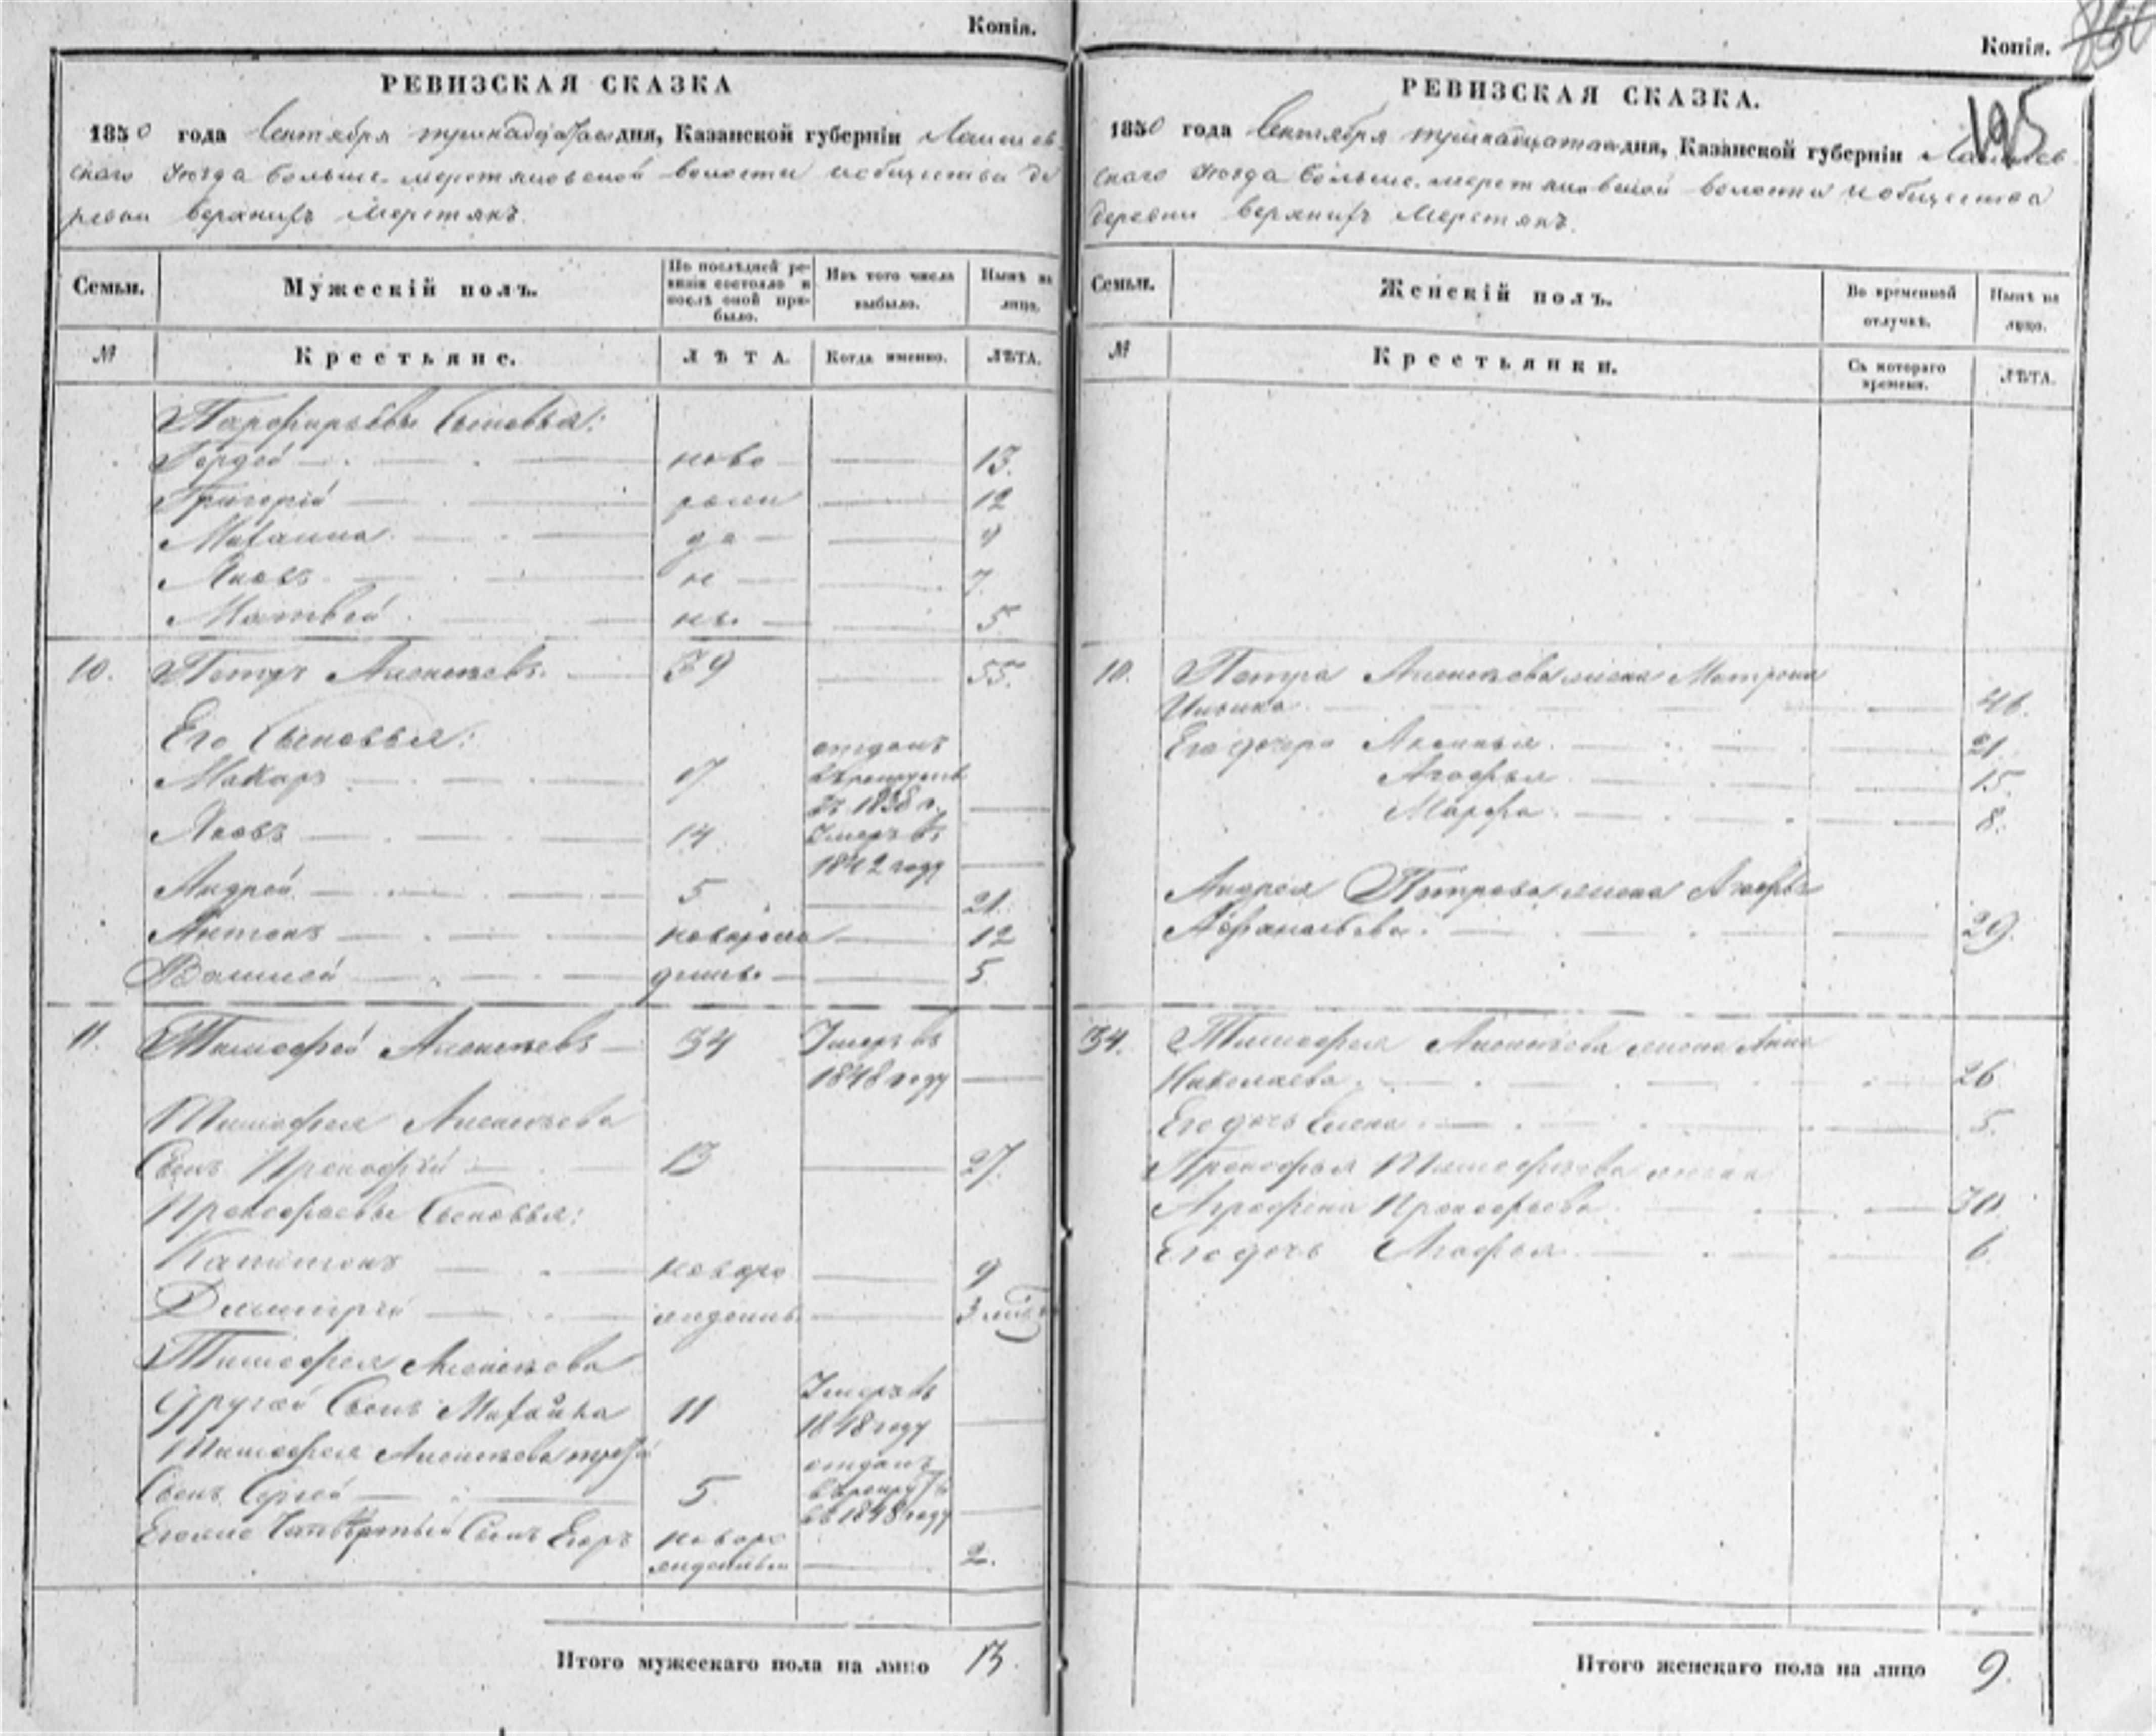 Копія.
РЕВИЗСКАЯ СКАЗКА
1850 года Сентября тринадцатаго дня, Казанской губерніи Лаишев
скаго уѣзда больше-меретяковской волости и общества де
ревни верхнихъ Меретякъ.
Семьи. Мужескій полъ. По послѣдней ревизіи состояло и послѣ оной прибыло. Изъ того числа выбыло. Нынѣ на лицо.
№ Крестьяне. ЛѢТА. Когда именно. ЛѢТА.
Парфирьевы Сыновья:
Гордей ново 13.
Григорій рожи 12
Михаила де 9
Яковъ н 7.
Матвей нъ. 5
10. Петръ Алексѣевъ. 39 55.
Его Сыновья:
Макаръ 17 отданъ въ рекруты въ 1838 г.
Яковъ 14 Умеръ въ 1842 году
Андрей 5 21.
Антонъ новорож 12
Василей денные 5.
11. Тимофей Алексѣевъ 34 Умеръ въ 1848 году
Тимофея Алексѣева
Сынъ Прокофій 13 27.
Прокофьевы Сыновья:
Капитонъ новоро 9
Дмитрій жденные 3 мѣс
Тимофея Алексѣева
другой Сынъ Михайла 11 Умеръ въ 1848 году
Тимофея Алексѣева третій
Сынъ Сергей 5. отданъ въ рекруты въ 1848 году
Егоже Четвертый Сынъ Егоръ новорожденный 2.
Итого мужескаго пола на лицо 13.
Копія.
195
РЕВИЗСКАЯ СКАЗКА.
1850 года Сентября тринадцатаго дня, Казанской губерніи Лаишев
скаго уѣзда больше-меретяковской волости и общества
деревни верхнихъ Меретякъ.
Семьи. Женскій полъ. Во временной отлучкѣ. Нынѣ на лицо.
№ Крестьянки. Съ котораго времени. ЛѢТА.
10. Петра Алексѣева жена Матрена
46.
Его дочери Аксинья. 21.
Агафья 15.
Марфа. 8.
Андрея Петрова жена
Афанасьева. 29.
34. Тимофея Алексѣева жена Анна
Николаева. 26
Его дочь Елена. 5.
Прокофья Тимофѣева жена
Аграфена Прокофьева 30.
Его дочь Агафья 6.
Итого женскаго пола на лицо 9.